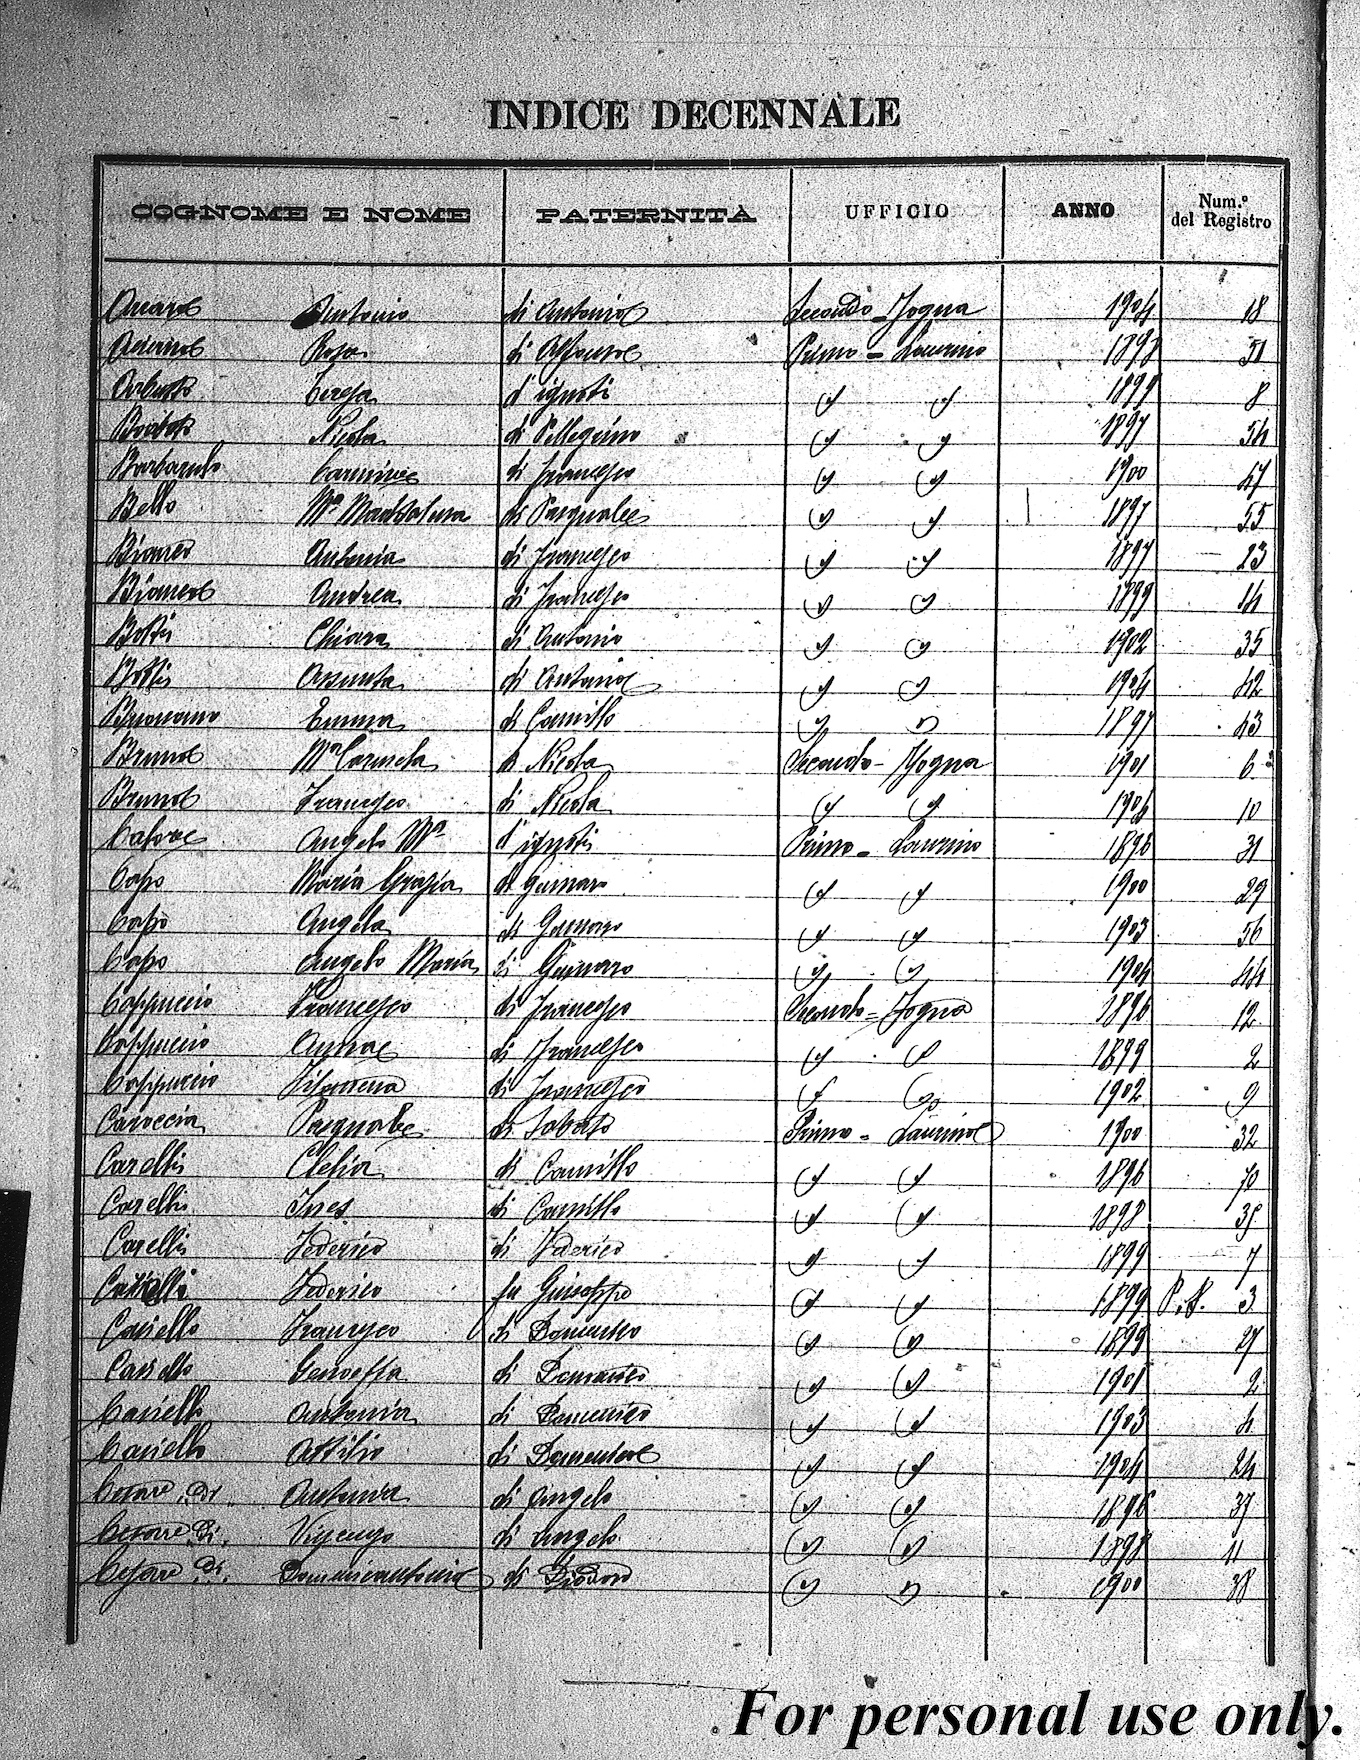 INDICE DECENNALE
COGNOME E NOME PATERNITÀ UFFICIO ANNO Num.º del Registro
Antonio di Antonio Secondo - Fogna 1904 18
Rosa di Alfonso Primo - Laurino 1898 51
Teresa d'ignoti 1899 8
Nicola di Pellegrino 1897 54
Carmine di Francesco 1900 47
Bello Mª Maddalena di Pasquale 1897 55
Bianco Antonia di Francesco 1897 23
Bianco Andrea di Francesco 1899 14
Botti Chiara di Antonio 1902 35
Botti Assunta di Antonio 1904 42
Emma di Camillo 1897 43
Bruno Mª Carmela di Nicola Secondo - Fogna 1901 6
Bruno Francesco di Nicola 1904 10
Angelo Mª d'ignoti Primo - Laurino 1896 31
Capo Maria Grazia di Gennaro 1900 29
Capo Angela di Gennaro 1903 56
Capo Angelo Maria di Gennaro 1904 44
Cappuccio Francesco di Francesco Secondo - Fogna 1896 12
Cappuccio di Francesco 1899 2
Cappuccio Filomena di Francesco 1902 9
Caroccia Pasquale di Sabato Primo - Laurino 1900 32
Carelli Clelia di Camillo 1896 70
Carelli Ines di Camillo 1898 35
Carelli Federico di Federico 1899 7
Federico fu Giuseppe 1899 3
Casiello Francesco di Domenico 1895 27
Casiello Genoeffa di Domenico 1901 2
Casiello Antonia di Domenico 1903 4
Casiello Attilio di Domenico 1904 24
Cesare Di Antonia di Angelo 1896 37
Cesare Di Vincenzo di Angelo 1898 11
Cesare Di Domenicantonio di 1900 38
For personal use only.